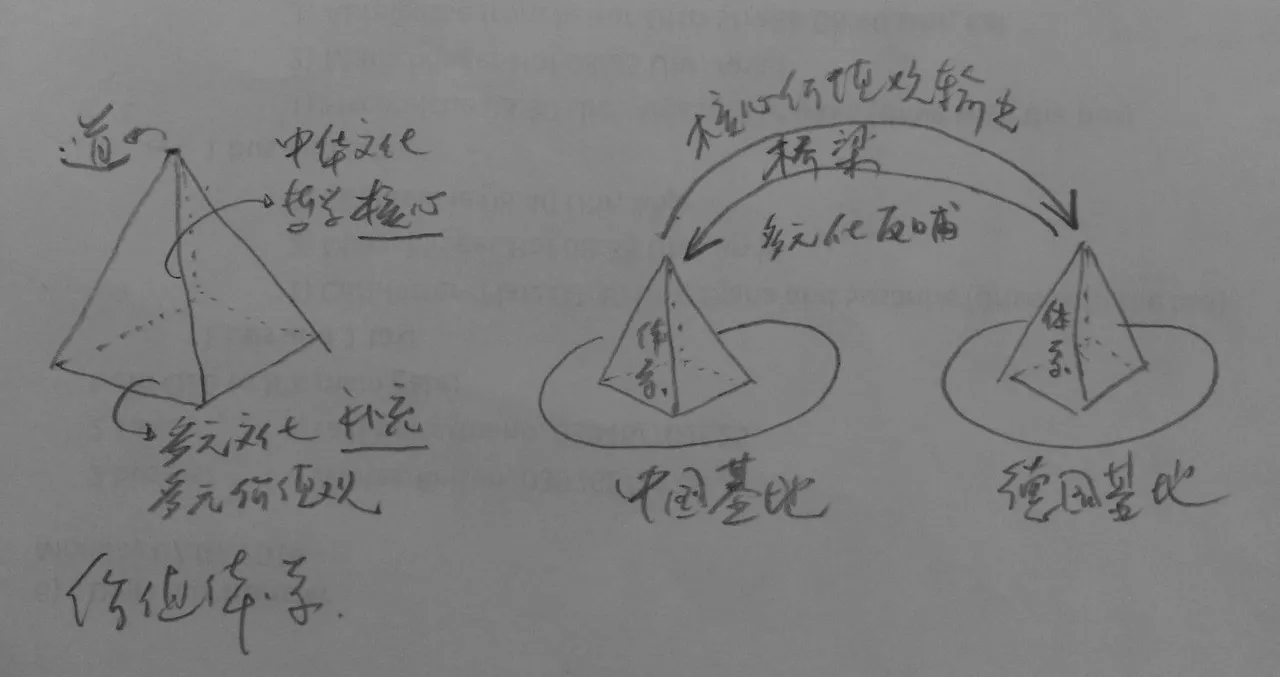 道
中华文化
哲学核心
多元文化 补充
多元价值观
价值体系.
核心价值观输出
桥梁
多元化反哺
体系
体系
中国基地
德国基地